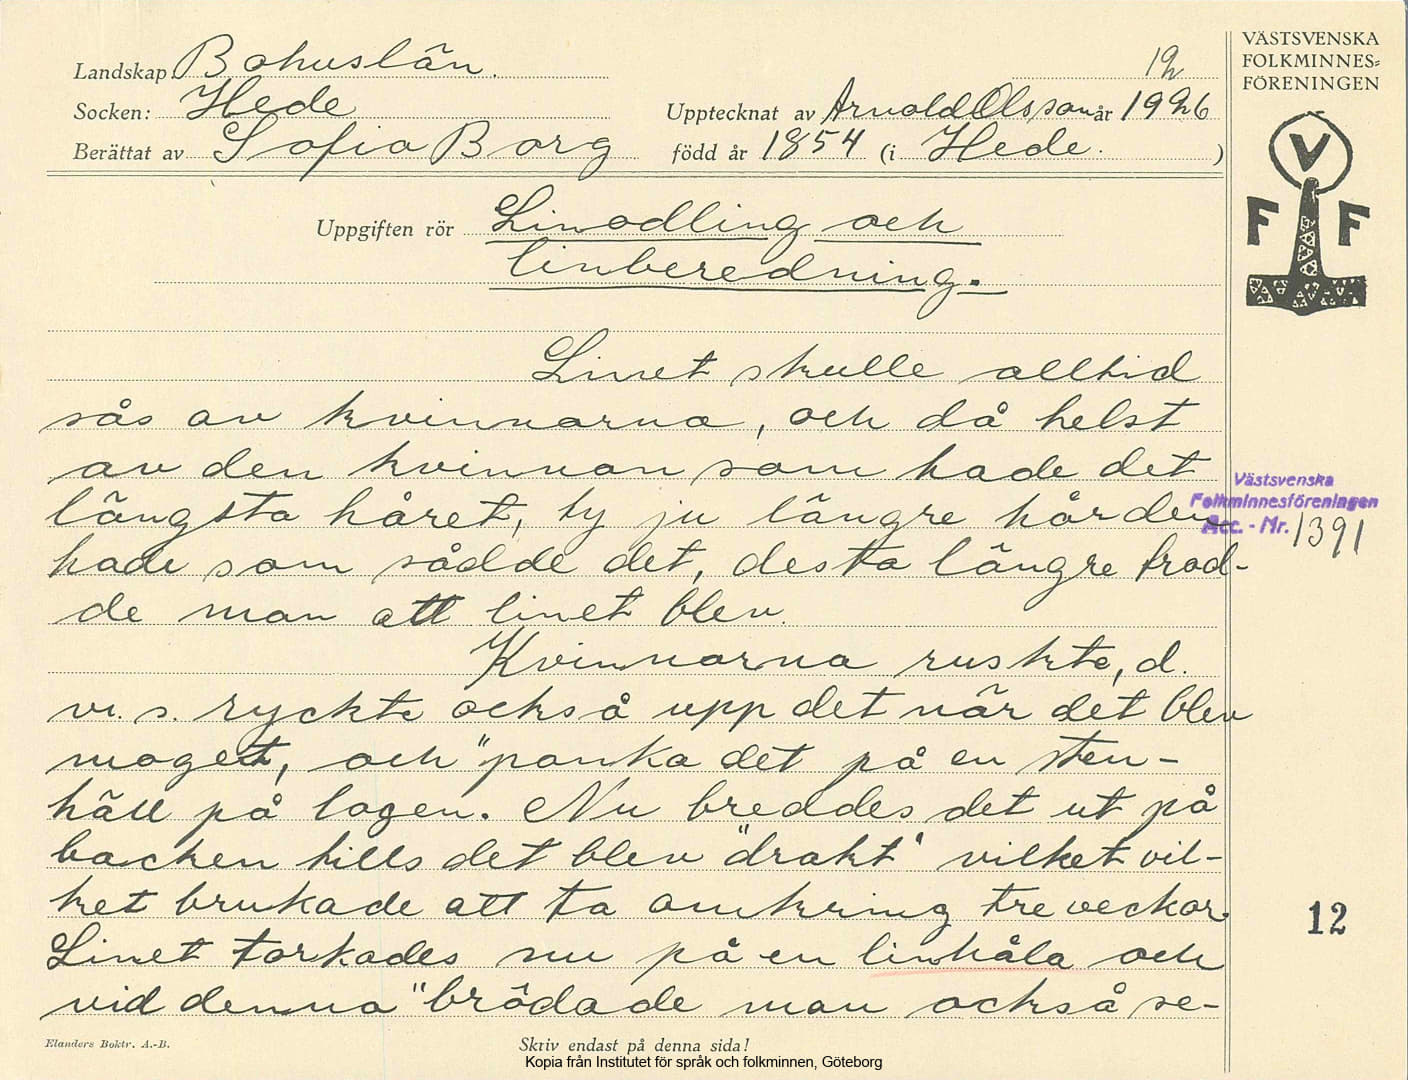 Landskap: Bohuslän.
12
Socken: Hede
Upptecknat av Arnold Olsson år 1926
Berättat av Sofia Borg
född år 1854 (i Hede.)
VÄSTSVENSKA
FOLKMINNES=
FÖRENINGEN
V
F F
Uppgiften rör Linodling och
linberedning.
Linet skulle alltid
sås av kvinnorna, och då helst
av den kvinnan som hade det
längsta håret, ty ju längre hår den
hade som sådde det, desto längre trod-
de man att linet blev.
Kvinnorna ruskte, d.
v. s. ryckte också upp det när det blev
moget, och "panka det på en sten-
häll på logen. Nu breddes det ut på
backen tills det blev "drakt" vilket vil-
ket brukade att ta omkring tre veckor.
Linet torkades nu på en linhåla och
vid denna "brödade man också se-
Västsvenska
Folkminnesföreningen
Acc. - Nr. 1391
12
Elanders Boktr. A.-B.
Skriv endast på denna sida!
Kopia från Institutet för språk och folkminnen, Göteborg